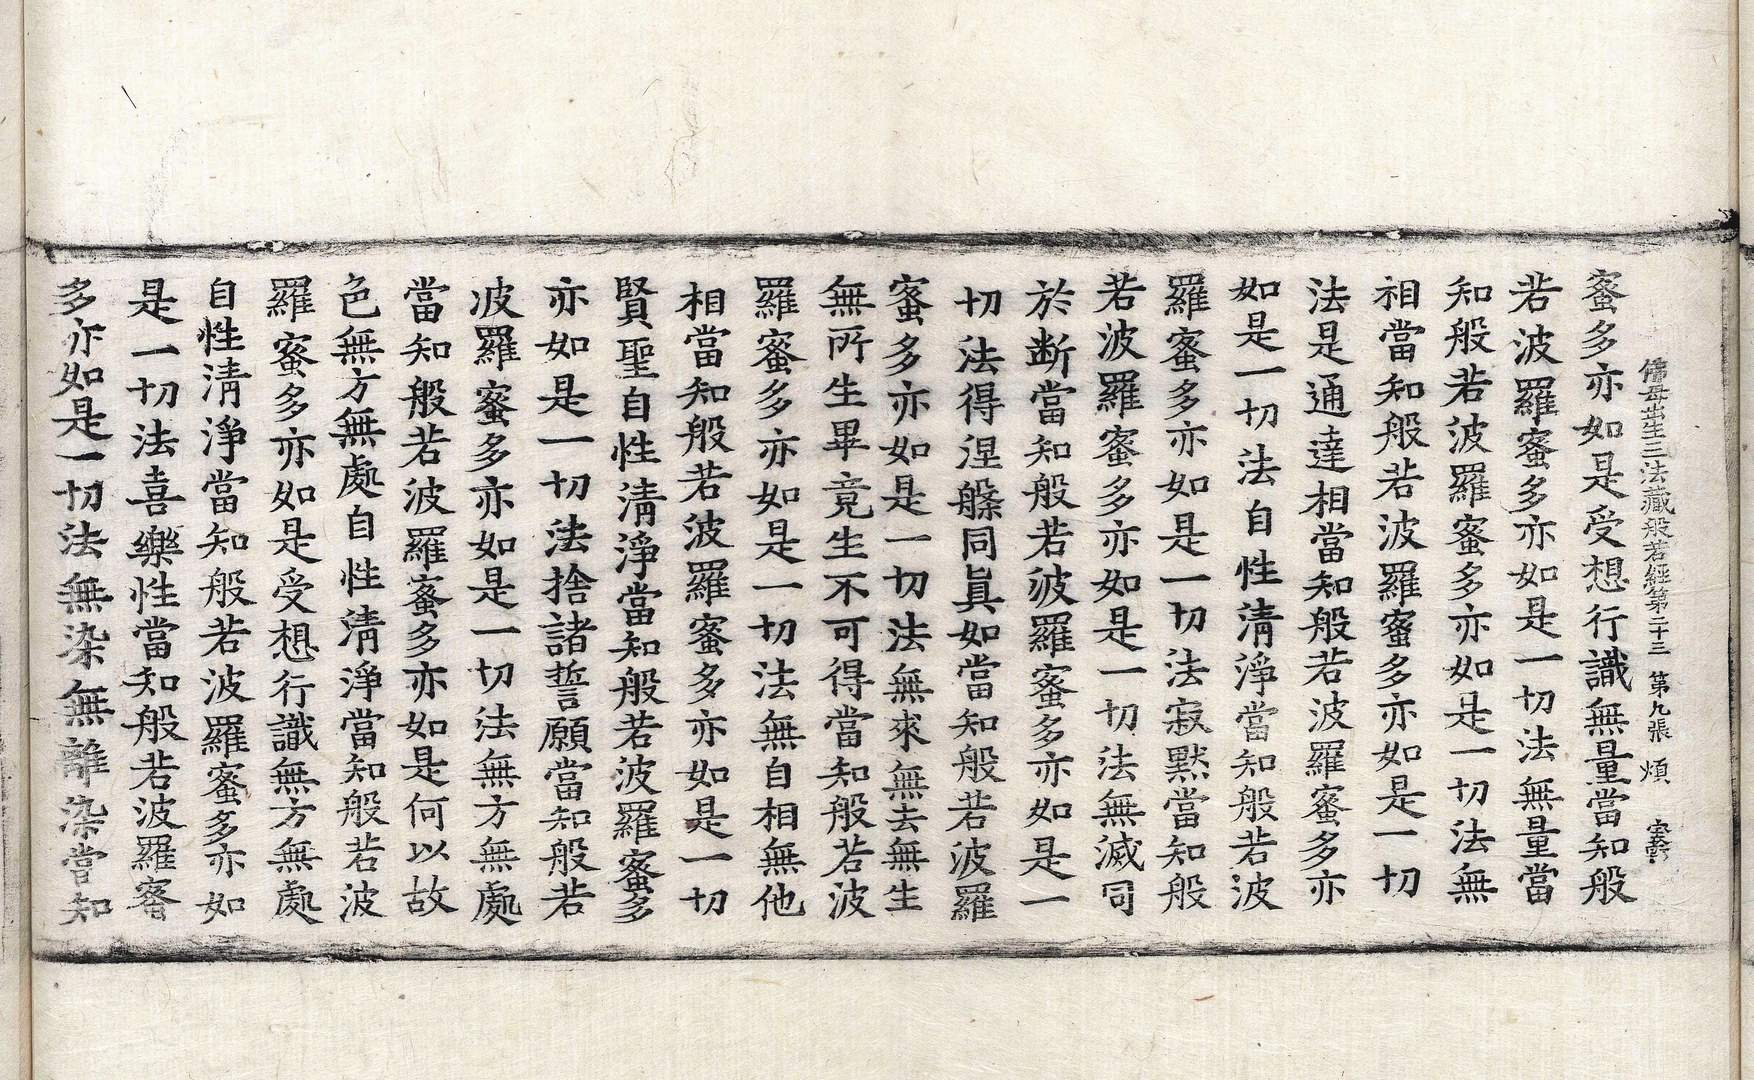 佛母出生三法藏般若經第二十三 第九張 煩
蜜多亦如是受想行識無量當知般
若波羅蜜多亦如是一切法無量當
知般若波羅蜜多亦如是一切法無
相當知般若波羅蜜多亦如是一切
法是通達相當知般若波羅蜜多亦
如是一切法自性清淨當知般若波
羅蜜多亦如是一切法寂默當知般
若波羅蜜多亦如是一切法無滅同
於断當知般若波羅蜜多亦如是一
切法得涅槃同眞如當知般若波羅
蜜多亦如是一切法無來無去無生
無所生畢竟生不可得當知般若波
羅蜜多亦如是一切法無自相無他
相當知般若波羅蜜多亦如是一切
賢聖自性清淨當知般若波羅蜜多
亦如是一切法捨諸誓願當知般若
波羅蜜多亦如是一切法無方無處
當知般若波羅蜜多亦如是何以故
色無方無處自性清淨當知般若波
羅蜜多亦如是受想行識無方無處
自性清淨當知般若波羅蜜多亦如
是一切法喜樂性當知般若波羅蜜
多亦如是一切法無染無離染當知